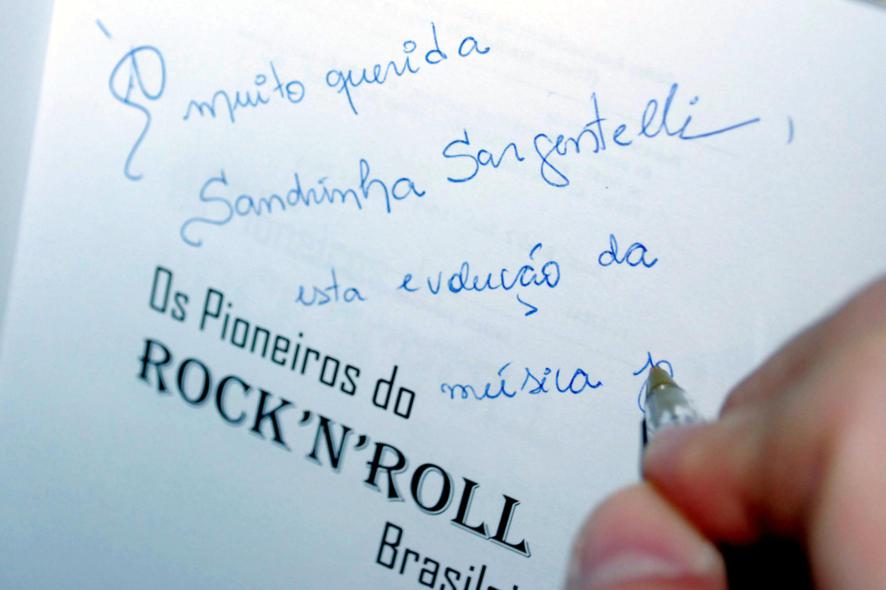 À muito querida
Sandrinha Sargentelli,
esta evolução da
música
Os Pioneiros do
ROCK'N'ROLL